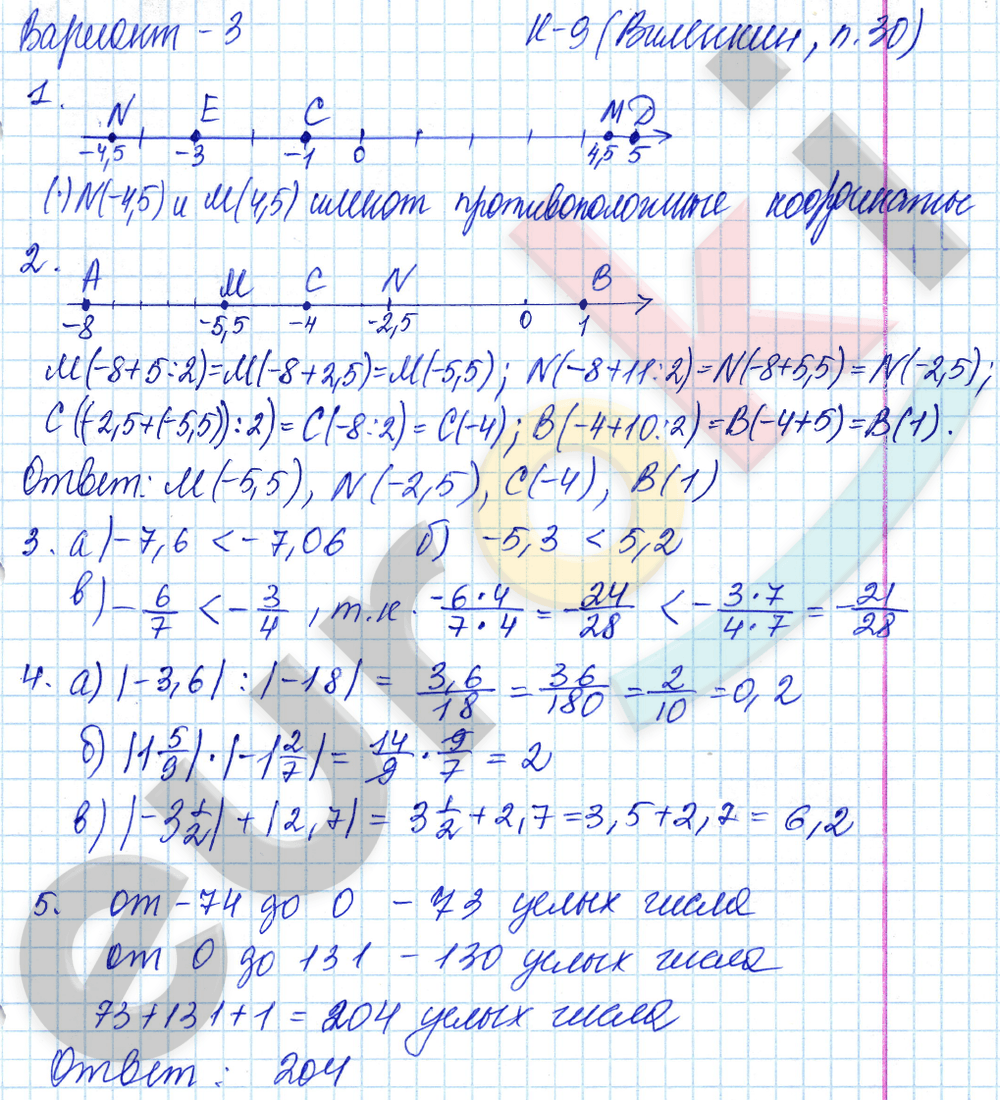 Вариант - 3 К-9 (Виленкин, п.30)
1.
N E C M D
-4,5 -3 -1 0 4,5 5
(·) N(-4,5) и M(4,5) имеют противоположные координаты
2.
A M C N B
-8 -5,5 -4 -2,5 0 1
M(-8+5:2)=M(-8+2,5)=M(-5,5); N(-8+11:2)=N(-8+5,5)=N(-2,5);
C((-2,5+(-5,5)):2)=C(-8:2)=C(-4); B(-4+10:2)=B(-4+5)=B(1).
Ответ: M(-5,5), N(-2,5), C(-4), B(1)
3. а) -7,6 < -7,06 б) -5,3 < 5,2
в) -6/7 < -3/4, т.к. -6·4/7·4 = -24/28 < -3·7/4·7 = -21/28
4. а) |-3,6| : |-18| = 3,6/18 = 36/180 = 2/10 = 0,2
б) |1 5/9| · |-1 2/7| = 14/9 · 9/7 = 2
в) |-3 1/2| + |2,7| = 3 1/2 + 2,7 = 3,5 + 2,7 = 6,2
5. от -74 до 0 - 73 целых числа
от 0 до 131 - 130 целых числа
73+131+1 = 204 целых числа
Ответ: 204
euroki